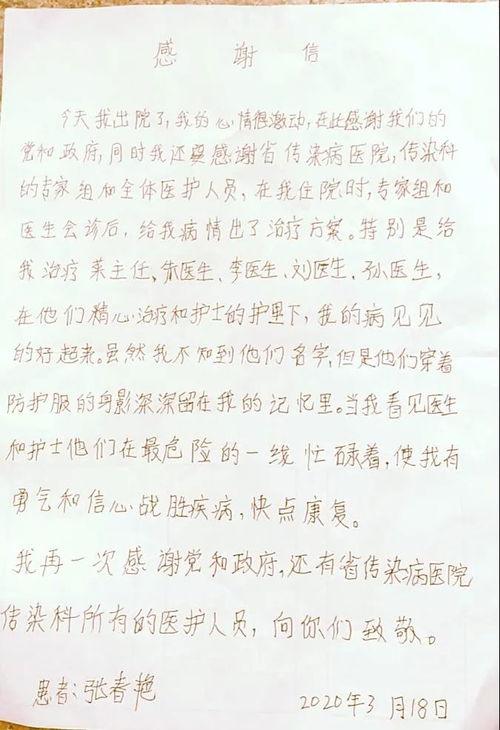 感谢信
今天我出院了,我的心情很激动,在此感谢我们的
党和政府,同时我还要感谢省传染病医院,传染科
的专家组和全体医护人员,在我住院时,专家组和
医生会诊后,给我病情出了治疗方案。特别是给
我治疗 主任、朱医生、李医生、刘医生、孙医生,
在他们精心治疗和护士的护里下,我的病见见
的好起来。虽然我不知到他们名字,但是他们穿着
防护服的身影深深留在我的记忆里。当我看见医生
和护士他们在最危险的一线忙碌着,使我有
勇气和信心战胜疾病,快点康复。
我再一次感谢党和政府,还有省传染病医院
传染科所有的医护人员,向你们致敬。
患者:张春艳
2020年3月18日